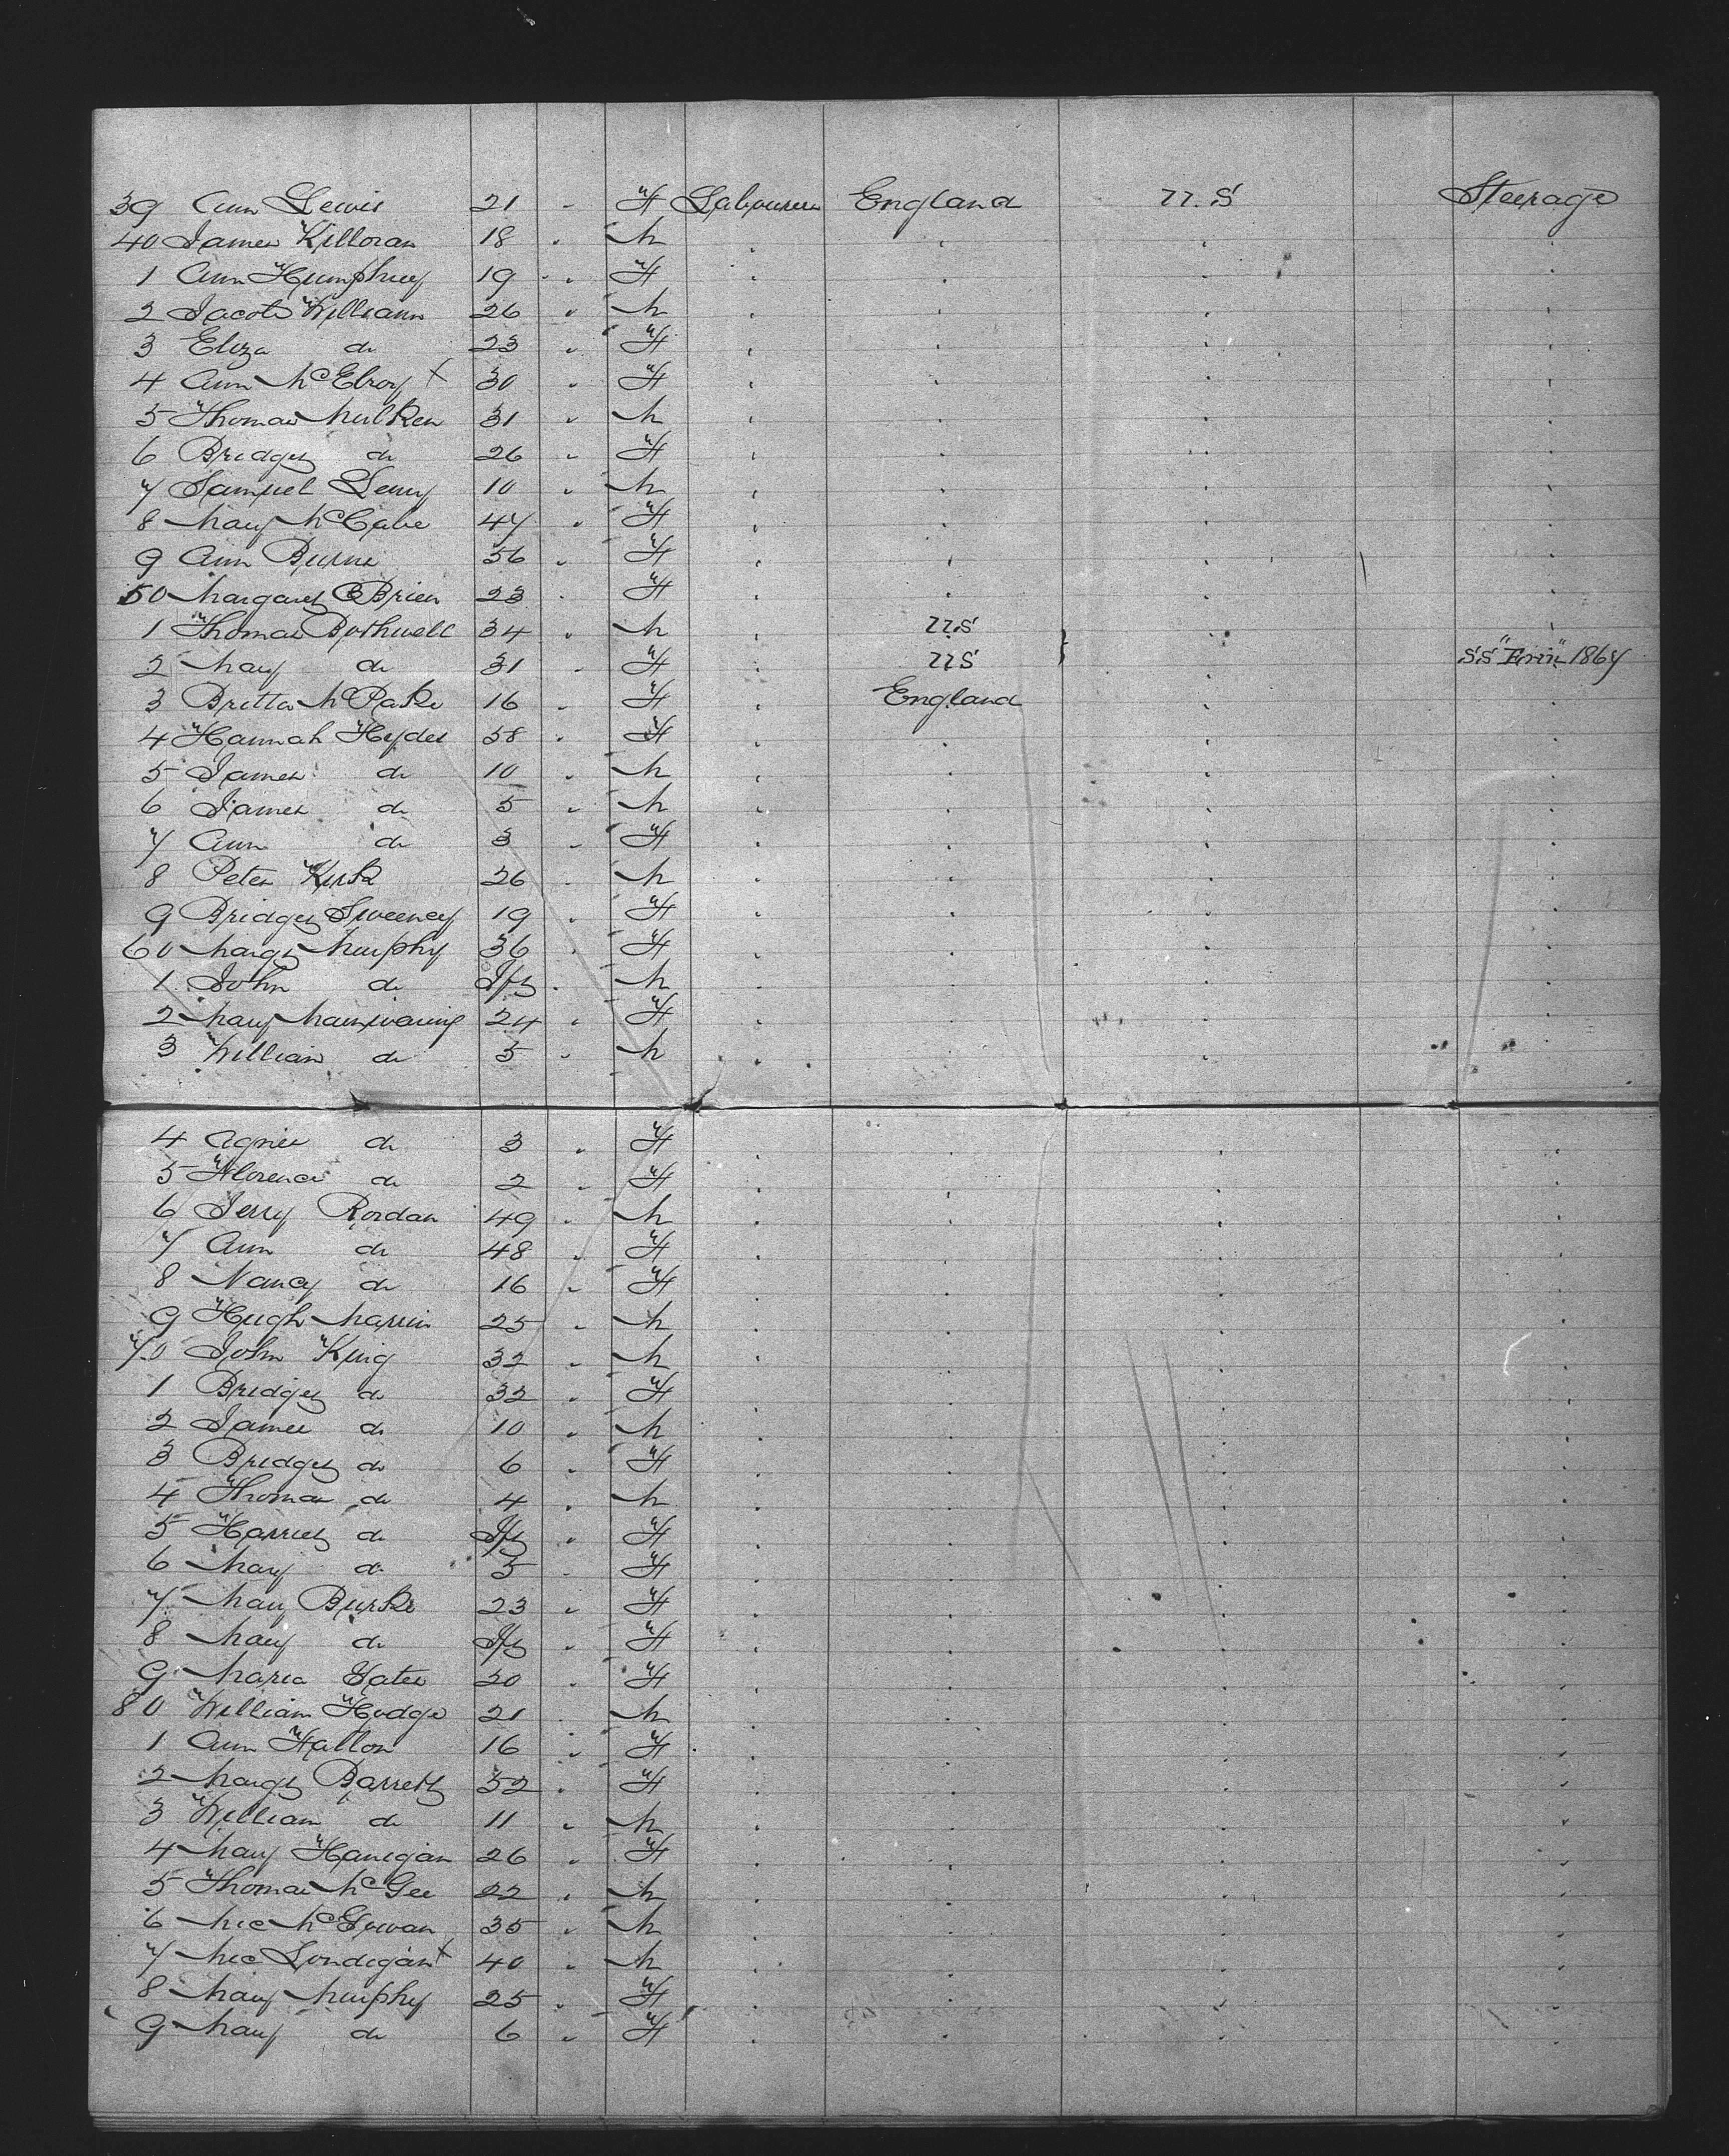 39 Ann Lewis 21 " F Labourers England U.S Steerage
40 James Killoran 18 " M " " " "
1 Ann Humphrey 19 " F " " " "
2 Jacob William 26 " M " " " "
3 Eliza do 23 " F " " " "
4 Ann McElroy x 30 " F " " " "
5 Thomas Mulken 31 " M " " " "
6 Bridget do 26 " F " " " "
7 Samuel 10 " M " " " "
8 Mary McCabe 47 " F " " " "
9 Ann Burns 56 " F " " " "
50 Margaret OBrien 23 " F " " " "
1 Thomas Bothwell 34 " M " U.S " "
2 Mary do 31 " F " U S } " S.S "Erin" 1867
3 Britta McPake 16 " F " England " "
4 Hannah Hydes 58 " F " " " "
5 James do 10 " M " " " "
6 James do 5 " M " " " "
7 Ann do 3 " F " " " "
8 Peter Kirk 26 " M " " " "
9 Bridget Sweeney 19 " F " " " "
60 Margt Murphy 36 " F " " " "
1 John do Ift " M " " " "
2 Mary Mainwaring 24 " F " " " "
3 William do 5 " M " " " "
4 Agnes do 3 " F " " " "
5 Florence do 2 " F " " " "
6 Jerry Rordan 49 " M " " " "
7 Ann do 48 " F " " " "
8 Nancy do 16 " F " " " "
9 Hugh Marrin 25 " M " " " "
70 John King 32 " M " " " "
1 Bridget do 32 " F " " " "
2 James do 10 " M " " " "
3 Bridget do 6 " F " " " "
4 Thomas do 4 " M " " " "
5 Harriet do Ift " F " " " "
6 Mary do 5 " F " " " "
7 Mary Burke 23 " F " " " "
8 Mary do Ift " F " " " "
9 Maria Yates 20 " F " " " "
80 William Hodge 21 " M " " " "
1 Ann Fallon 16 " F " " " "
2 Margt Barrett 52 " F " " " "
3 William do 11 " M " " " "
4 Mary Hanigan 26 " F " " " "
5 Thomas McGee 22 " M " " " "
6 Mic McGowan 35 " M " " " "
7 Mic Londigan x 40 " M " " " "
8 Mary Murphy 25 " F " " " "
9 Mary do 6 " F " " " "